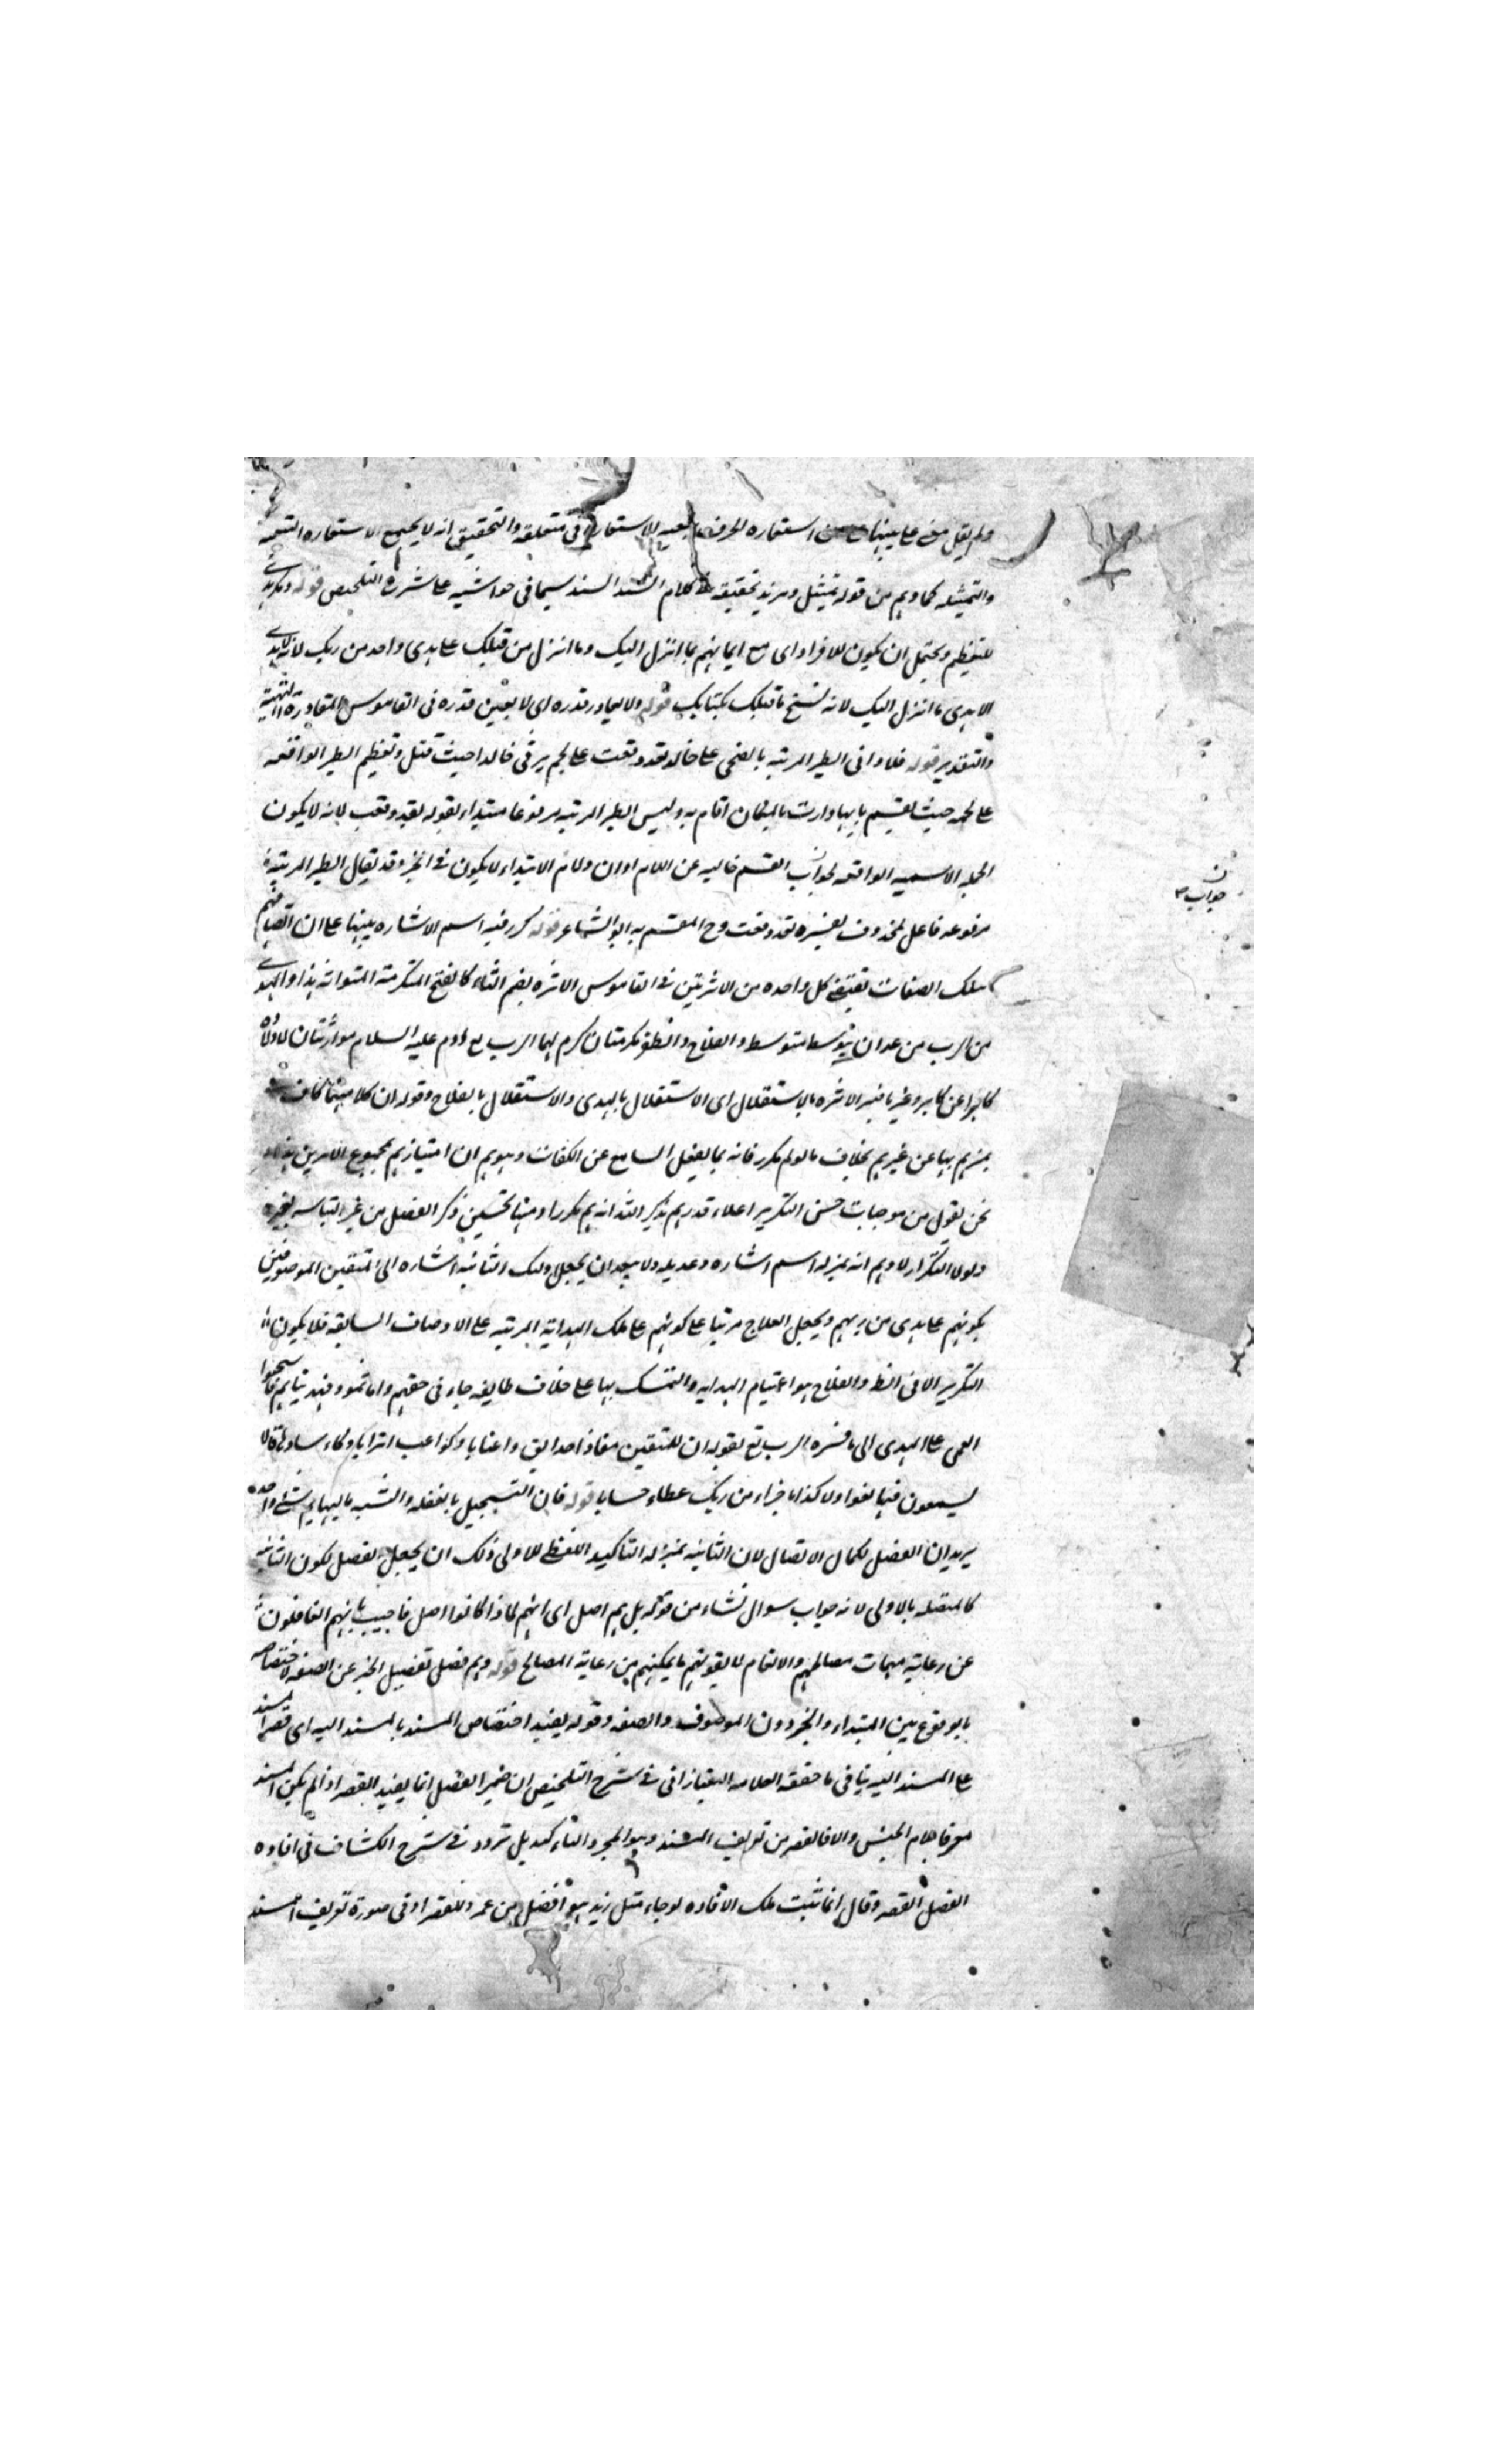 ولم يقل معنى على بينها استعارة الحرف تبعية للاستعارة في متعلقه والتحقيق انه لا يجتمع الاستعارة التبعية
والتمثيلية كما وهم من قوله تمثيل ومزيد تحقيقه في كلام السيد السند سيما في حواشيه على شرح التلخيص قوله ونكر هدى
للتعظيم ويحتمل ان يكون للافراد اى مع ايمانهم بما انزل اليك وما انزل من قبلك على هدى واحد من ربك لانه لا هدى
الا هدى ما انزل اليك لانه نسخ ما قبلك بكتابك قوله ولا يقادر قدره اى لا يعين قدره فى القاموس المقادرة
والتقدير قوله فلا وابى الطير المربة بالضحى على خالد لقد وقعت على لحم يرثى خالدا حيث قتل وتعظيم الطير الواقعة
على لحمه حيث يقسم بابيها اقام به وليس الطير المربة مرفوعا مبتداء لقوله لقد وقعت لانه لا يكون
الجملة الاسمية الواقعة لجواب القسم خالية عن اللام او ان ولام الابتداء لا يكون فى الخبر وقد يقال الطير المربة
مرفوعة فاعل لمحذوف يفسره لقد وقعت وح المقسم به ابو الشاعر قوله كرر فيه اسم الاشارة تنبيها على ان اتصافهم
بتلك الصفات تقتضى كل واحدة من الاثرتين فى القاموس الاثرة بضم الثاء كالفتح المكرمة المتوارثة
من الرب من غير ان يتوسط متوسط والفلاح مكرمتان كرم بهما الرب مع ادم عليه السلام موارثتان لاولاده
كابرا عن كابر وغيرنا فسر الاثرة بالاستقلال اى الاستقلال بالهدى والاستقلال بالفلاح وقوله ان كلا منهما كاف
تميزهم بها عن غيرهم بخلاف ما لو لم يكرر فانه ربما يغفل السامع عن الكفات ويتوهم ان امتيازهم بمجموع الامرين
نحن نقول من موجبات حسن التكرير اعلاء قدرهم بذكر مكررا ومنها تحسين ذكر الفصل من غير التباسه بغيره
ولولا التكرار لاوهم انه بمنزلة اسم اشارة وعديله ولا يبعد ان يجعل اولئك الثانية اشارة الى المتقين الموصوفين
بكونهم على هدى من ربهم ويجعل الفلاح مرتبا على كونهم على تلك الهداية المرتبة على الاوصاف السابقة فلا يكون
التكرير الا فى اللفظ والفلاح هو اغتنام الهداية والتمسك بها على خلاف طايفة جاء فى حقهم واما ثمود فهديناهم فاستحبوا
العمى على الهدى الى ما فسره الرب تع بقوله ان للمتقين مفازا حدائق واعنابا وكواعب اترابا وكاسا دهاقا لا
يسمعون فيها لغوا ولا كذابا جزاء من ربك عطاء حسابا قوله فان التسجيل بالغفلة والتشبيه بالبهايم شئ واحد
يريد ان الفصل لكمال الاتصال لان الثانية بمنزلة التاكيد اللفظى للاولى ولك ان يجعل الفصل لكون الثانية
كالمتصلة بالاولى لانه جواب سوال نشاء من قوله بل هم اضل اى انهم لماذا كانوا اضل فاجيب بانهم الغافلون
عن رعاية مهمات مصالحهم والانعام لا يفوتهم ما يمكنهم من رعاية المصالح قوله وهم فصل تفصيل الخبر عن الصفة لاختصاصه
بالوقوع بين المبتداء والخبر دون الموصوف والصفة وقوله يفيد اختصاص المسند بالمسند اليه اى قصر المسند
على المسند اليه ينافى ما حققه العلامة التفتازانى فى شرح التلخيص ان ضمير الفصل انما يفيد القصر اذا لم يكن المسند
معرفا بلام الجنس والا فالقصر من تعريف المسند وهو لمجرد التاكيد بل تردد فى شرح الكشاف فى افادة
الفصل القصر وقال انما تثبت تلك الافادة لو جاء مثل زيد هو افضل من عمرو للقصر اذ فى صورة تعريف المسند
جواب